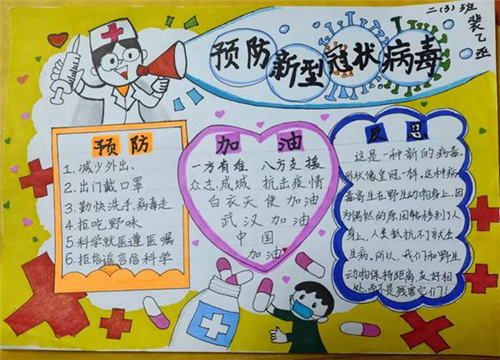 二(3)班
裴乙丞
预防新型冠状病毒
预防
1.减少外出、
2.出门戴口罩
3.勤快洗手,病毒走
4.拒吃野味
5.科学就医遵医嘱
6.拒信谣言信科学
加油
一方有难 八方支援
众志成城 抗击疫情
白衣天使 加油
武汉 加油
中国
加油
反思
这是一种新的病毒,
形状像皇冠一样,这种病
毒寄生在野生动物身上,因
为偶然的原因移到了人
身上,人类抵抗不了就会
生病。所以,我们和野生
动物保持距离,友好相
处,而不是残害它们!